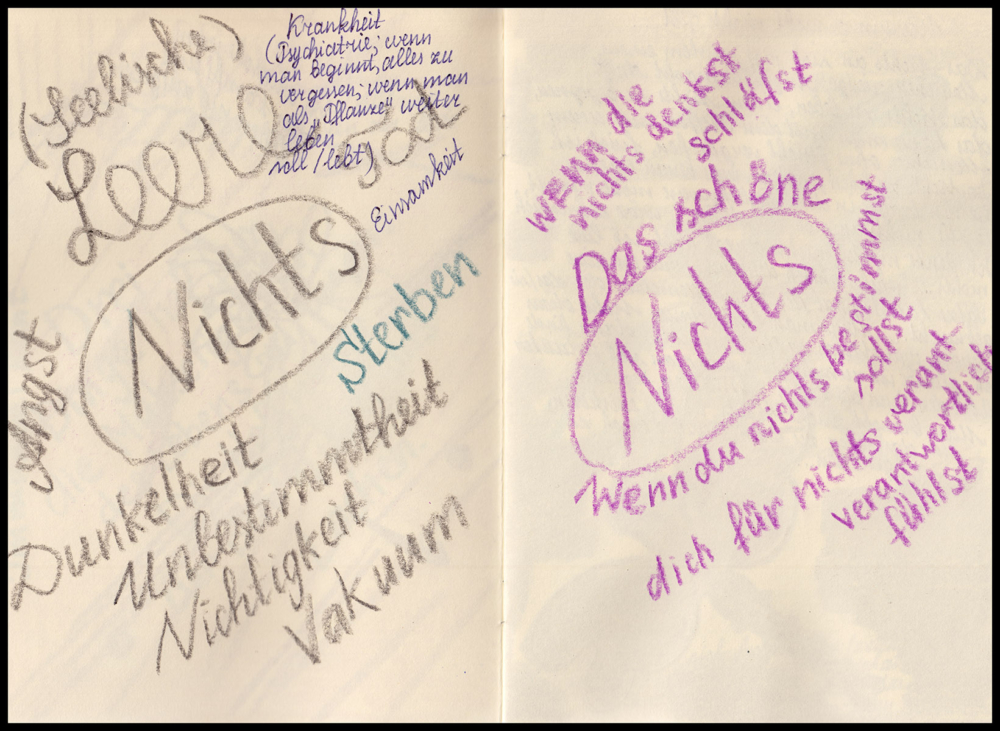 (Seelische)
Leere
Tod
Krankheit
(Psychiatrie; wenn
man beginnt, alles zu
vergessen; wenn man
als „Pflanze“ weiter
leben
soll / lebt)
Einsamkeit
Nichts
Sterben
Angst
Dunkelheit
Unbestimmtheit
Nichtigkeit
Vakuum
wenn die
nichts denkst
schläfst
Das schöne
Nichts
Wenn du nichts bestimmst
sollst
dich für nichts verant
verantwortlich
fühlst